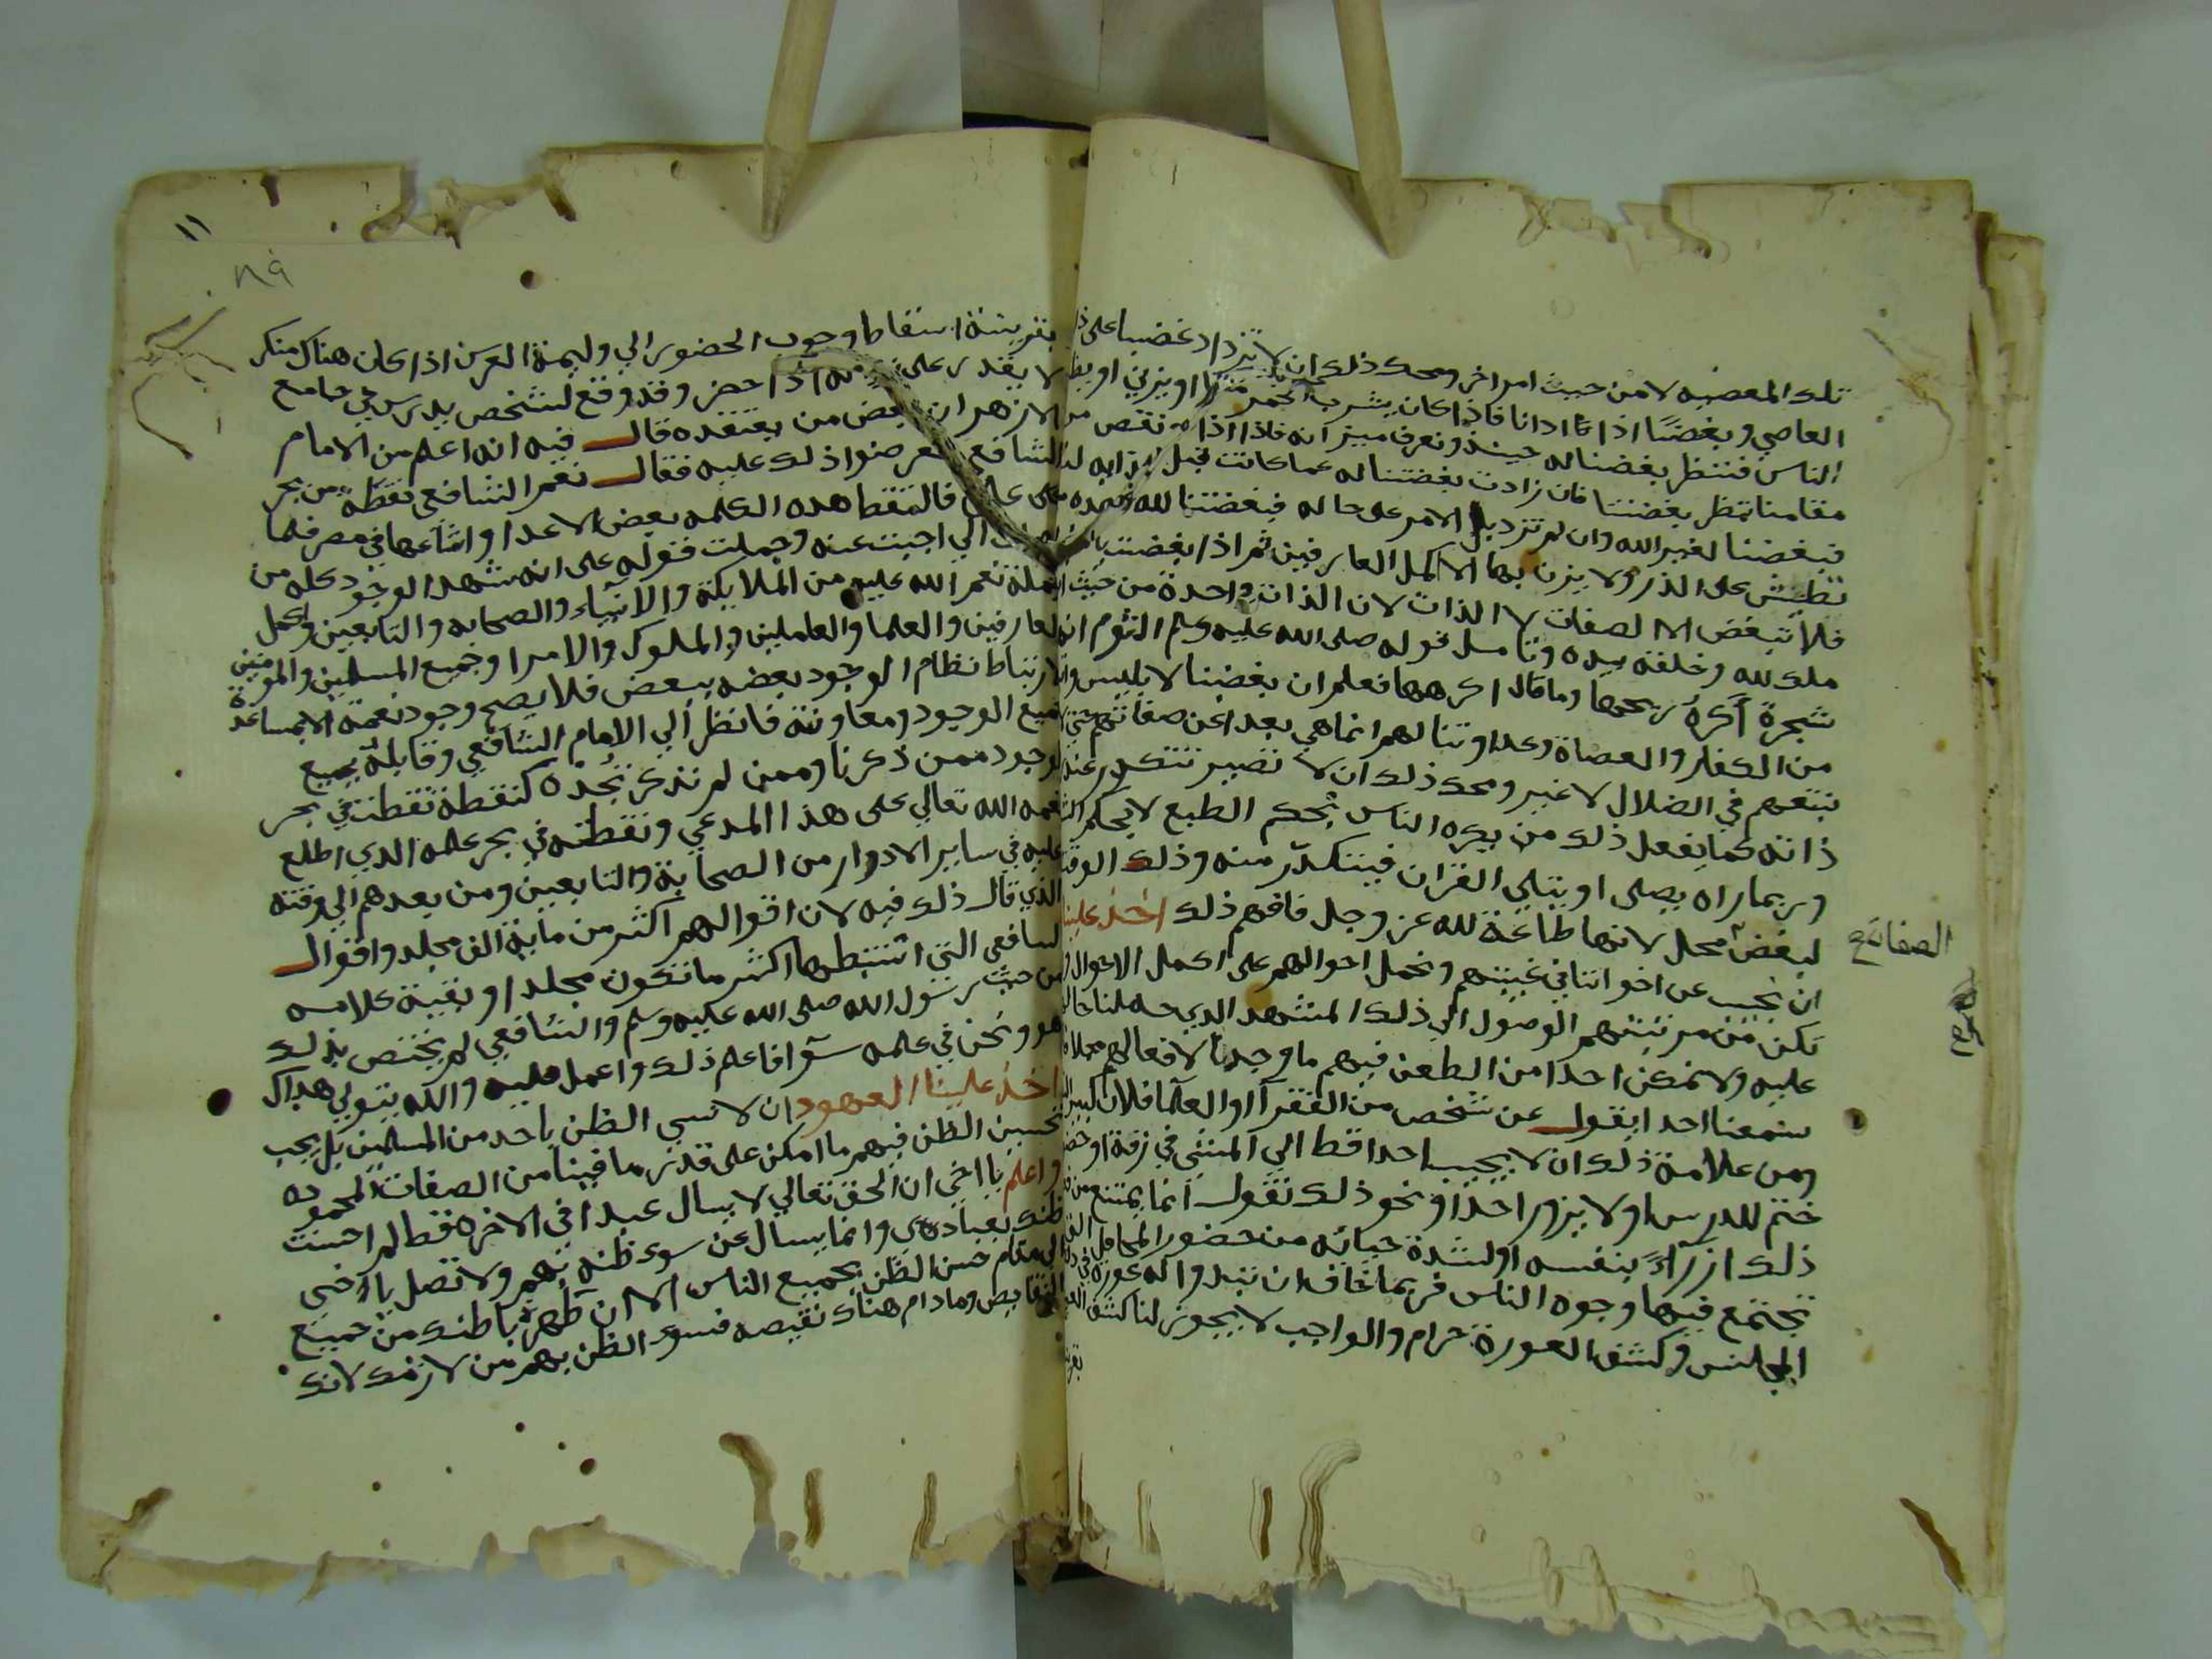 تلك المعصيه لا من حيث امر اخر ومحك ذلك ان لا تزداد غضبا على
العاصي وبغضا اذا اذانا فاذا كان يشرب الخمر او يزني او
الناس فننظر بغضنا له حينئذ ونعرف ميزانه فاذا اذانا نقص
مقامنا ننظر بغضنا فان زادت بغضتنا له عما كانت قبل
فبغضنا لغير الله وان لم تزد بل الامر على حاله فبغضتنا لله وهذه
تطيش على الذر ولا يزن بها الا كمل العارفين ثم اذا ابغضت
فلا تبغض الا الصفات لا الذات لان الذات واحدة من حيث
ملك لله وخلقه بيده وتامل قوله صلى الله عليه وسلم الثوم
شجرة اكره ريحها وما قال اكرهها فعلم ان بغضنا لابليس
من الكفار والعصاة وعداوتنا لهم انما هي بعدا عن صفاتهم
نتبعهم في الضلال لا غير ومحك ذلك ان لا نصير نتكدر عند
ذاته كما يفعل ذلك من يكره الناس بحكم الطبع لا بحكم
وربما راه يصلى او يتلى القران فيتكدر منه وذلك
لبغض محل لانها طاعة لله عز وجل فافهم ذلك اخذ علينا
ان نجيب عن اخواننا في غيبتهم ونحمل احوالهم على اكمل الاحوال
نكن من مرتبتهم الوصول الي ذلك المشهد الذي حملنا
عليه ولا نمكن احدا من الطعن فيهم ما وجدنا لافعالهم محلا
سمعنا احدا يقول عن شخص من الفقرا او العلما فلان
ومن علامة ذلك ان لا يجيب احدا قط الي المشي في زفة او
ختم للدرس او لا يزور احدا ونحو ذلك نقول انما يمتنع من
ذلك ازراء بنفسه او لشدة حيائه من حضور المحافل
تجتمع فيها وجوه الناس فربما خاف ان تبدوا له عورة في
المجلس وكشف العورة حرام والواجب لا يجوز لنا كشف
الصفائح
بقرينة اسقاط وجوب الحضور الي وليمة العرس اذا كان هناك منكر
لا يقدر على اذا حضر وقد وقع لشخص يدرس في جامع
الازهر ان بعض من يعتقده قال فيه انه اعلم من الامام
الشافعي فعرضوا ذلك عليه فقال نعم الشافعي نقطة من بحر
علمي فالتقط هذه الكلمه بعض الاعدا واشاعها في مصر فلما
الي اجبت عنه وحملت قوله على انه شهد الوجود كله من
جملة نعم الله عليه من الملايكة والانبياء والصحابه والتابعين وكمل
العارفين والعلما والعاملين والملوك والامرا وجميع المسلمين والمومنين
لارتباط نظام الوجود بعضه ببعض فلا يصح وجود نعمة الا بمساعدة
جميع الوجود ومعاونته فانظر الي الامام الشافعي وقابله بجميع
الوجود ممن ذكرنا وممن لم نذكر تجده كنقطة نقطت في بحر
نعمه الله تعالي على هذا المدعي ونقطته في بحر علمه الذي اطلع
عليه في ساير الادوار من الصحابة والتابعين ومن بعدهم الي وقته
الذي قال ذلك فيه لان اقوالهم اكثر من ماية الف مجلد واقوال
الشافعي التي استنبطها اكثر ما تكون مجلدا وبقية كلامه
من حيث رسول الله صلى الله عليه وسلم والشافعي لم يختص بذلك
هو ونحن في علمه سوا فاعلم ذلك واعمل عليه والله يتولي هداك
اخذ علينا العهود ان لا نسي الظن باحد من المسلمين بل يجب
تحسين الظن فيهم ما امكن على قدر ما فينا من الصفات المحموده
واعلم يا اخي ان الحق تعالي لا يسال عبدا في الاخره قط لم احسنت
ظنك بعبادي وانما يسال عن سوء ظنه بهم ولا تصل يا اخي
الي مقام حسن الظن بجميع الناس الا ان طهرت باطنك من جميع
النقايص وما دام هناك نقيصه فسوء الظن بهم من لازمك لانك
٨٩
١١